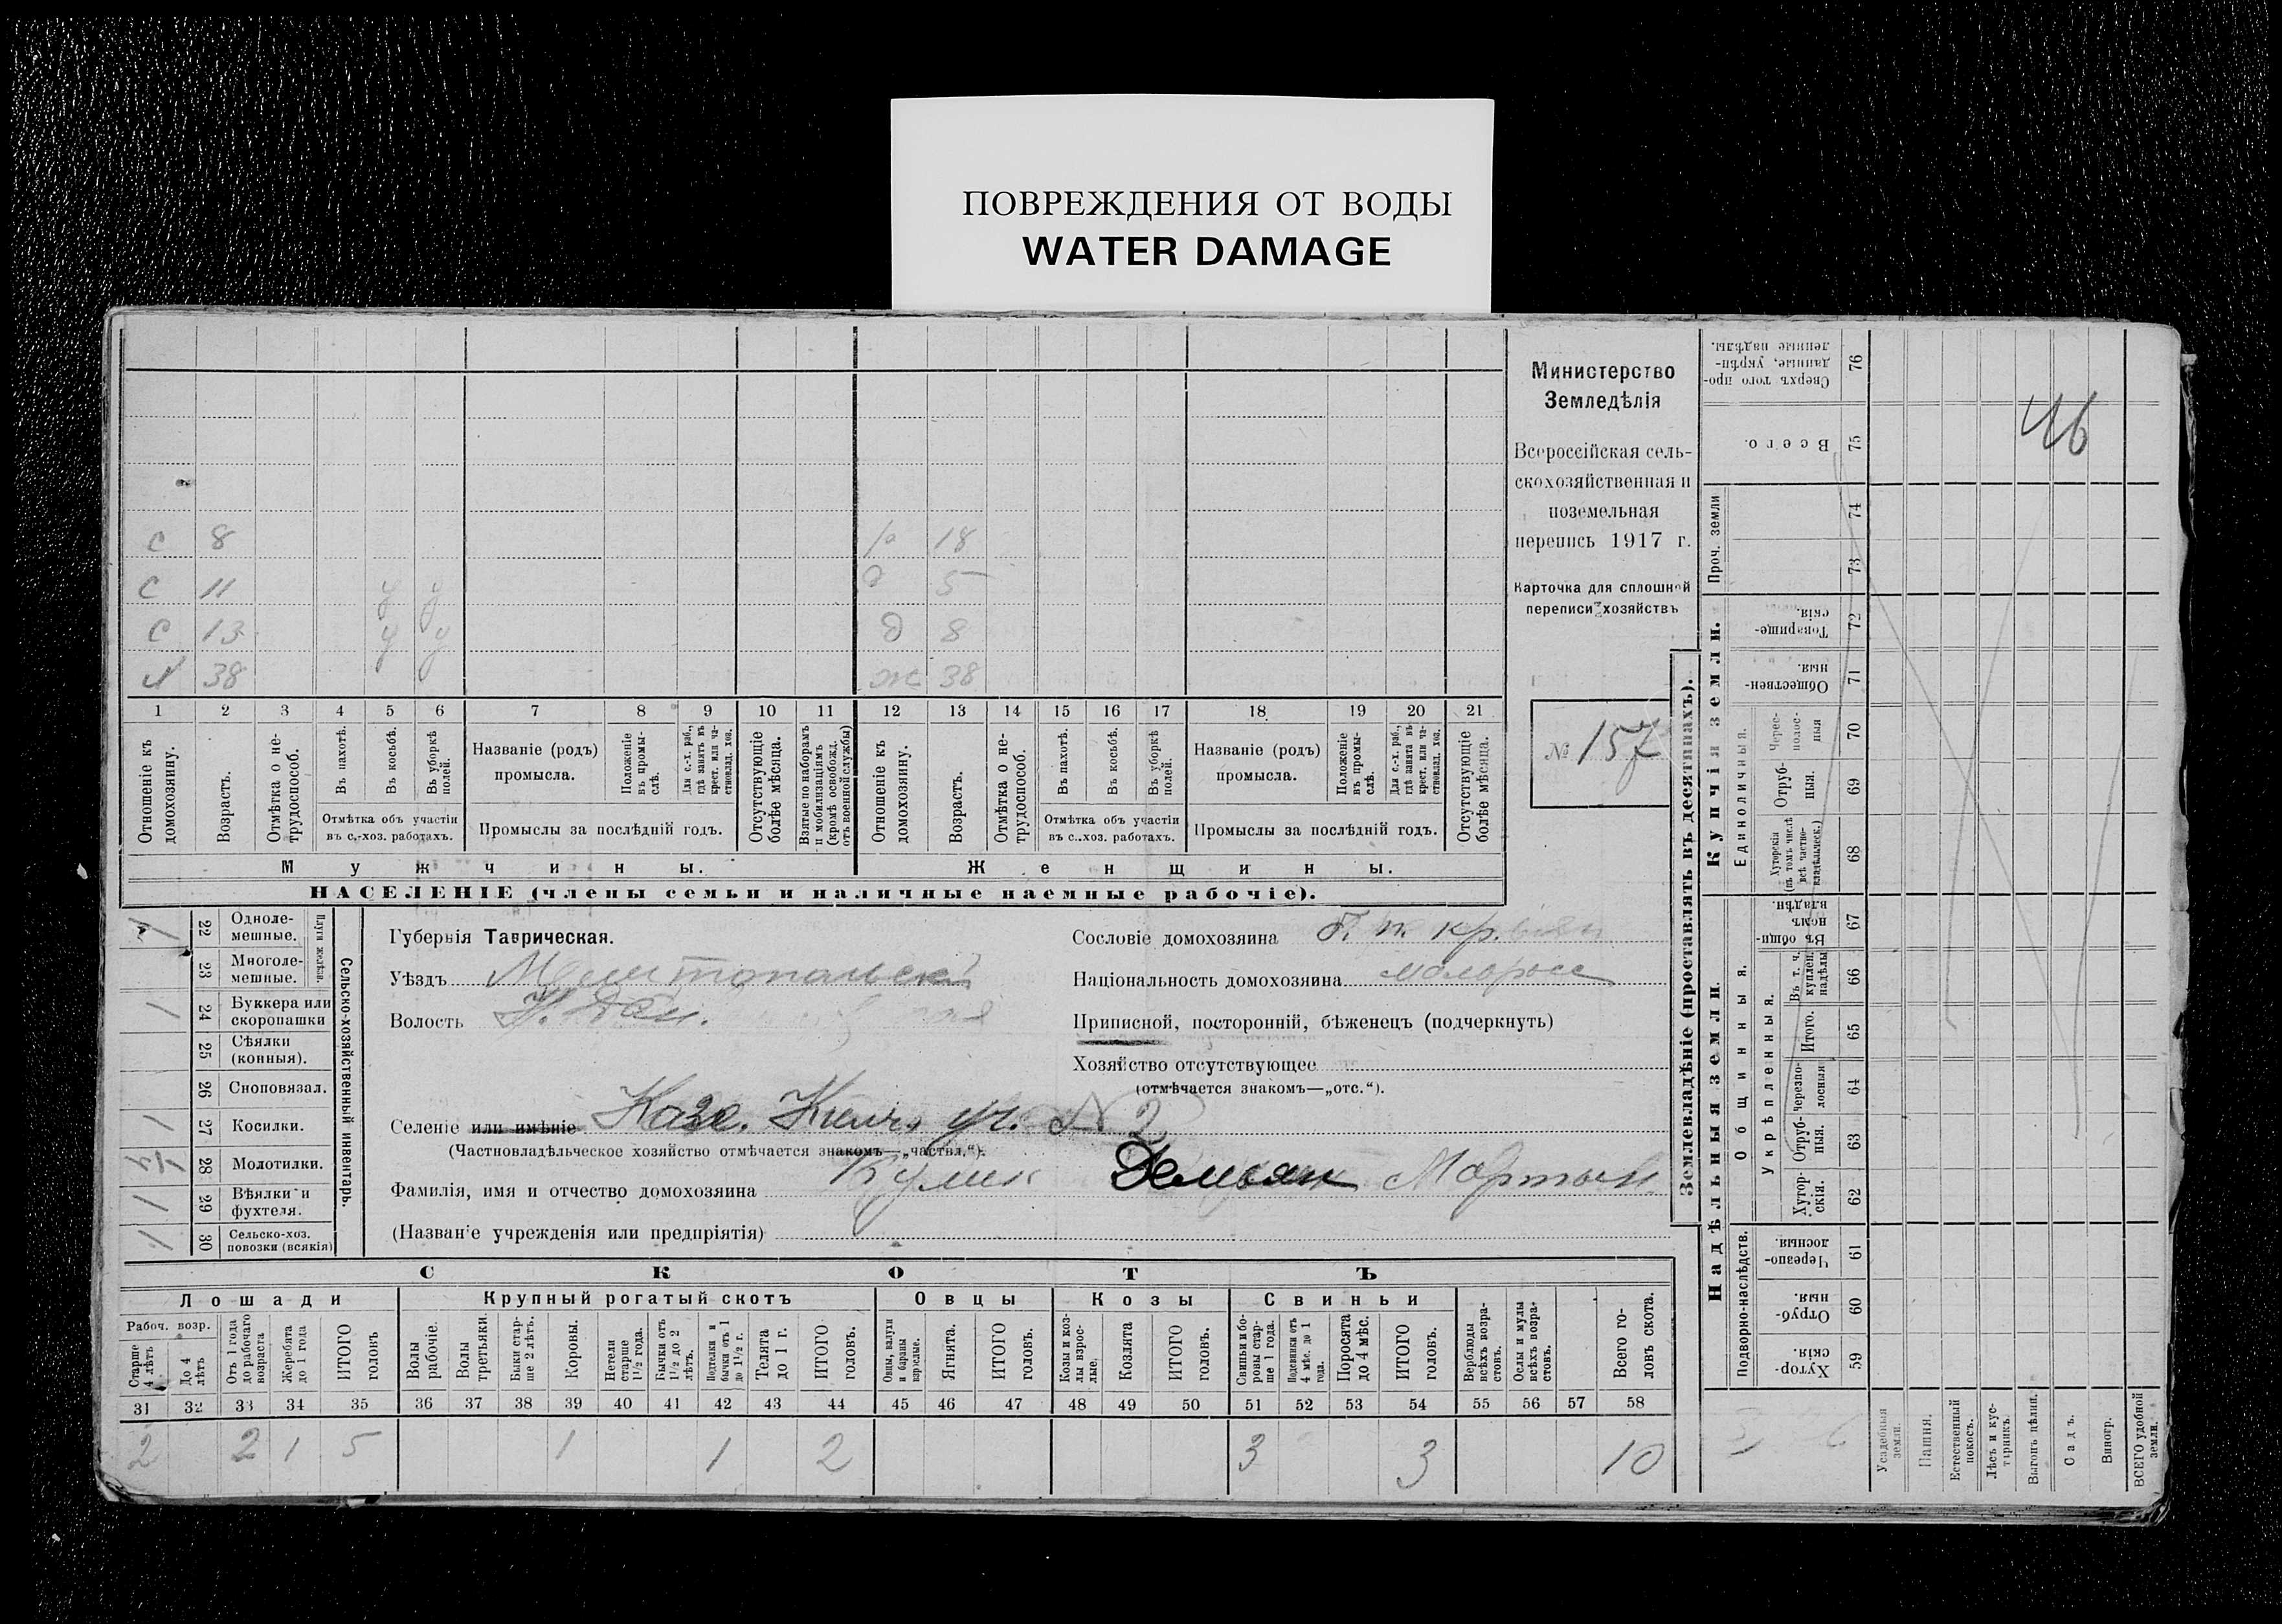 ПОВРЕЖДЕНИЯ ОТ ВОДЫ
WATER DAMAGE
Министерство
Земледѣлія
Всероссійская сель-
скохозяйственная и
поземельная
перепись 1917 г.
Карточка для сплошной
переписи хозяйствъ
№ 157
с 8 р 18
с 11 у у д 5
с 13 у у д 8
38 ж 38
1 2 3 4 5 6 7 8 9 10 11 12 13 14 15 16 17 18 19 20 21
Отношеніе къ домохозяину.
Возрастъ.
Отмѣтка о не-трудоспособ.
Въ пахотѣ.
Въ косьбѣ.
Въ уборкѣ полей.
Отмѣтка объ участіи
въ с.-хоз. работахъ.
Названіе (родъ)
промысла.
Положеніе въ промы-слѣ.
Для с.-х. раб., гдѣ занятъ въ крест. или ча-стновлад. хоз.
Промыслы за послѣдній годъ.
Отсутствующіе болѣе мѣсяца.
Взятые по наборамъ и мобилизаціямъ (кромѣ освобожд. отъ военной службы)
Отношеніе къ домохозяину.
Возрастъ.
Отмѣтка о не-трудоспособ.
Въ пахотѣ.
Въ косьбѣ.
Въ уборкѣ полей.
Отмѣтка объ участіи
въ с..хоз. работахъ.
Названіе (родъ)
промысла.
Положеніе въ промы-слѣ.
Для с.-х. раб., гдѣ занята въ крест. или ча-стновлад. хоз.
Промыслы за послѣдній годъ.
Отсутствующіе болѣе мѣсяца.
Мужчины. Женщины.
НАСЕЛЕНІЕ (члены семьи и наличные наемные рабочіе).
Сельско-хозяйственный инвентарь.
Плуги желѣзн.
1 22 Одноле-мешные.
23 Многоле-мешные.
1 24 Буккера или скоропашки
25 Сѣялки (конныя).
26 Сноповязал.
1 27 Косилки.
28 Молотилки.
1 29 Вѣялки и фухтеля.
1 30 Сельско-хоз. повозки (всякія)
Губернія Таврическая.
Уѣздъ Мелитопольскій
Волость
Сословіе домохозяина
Національность домохозяина малоросс
Приписной, посторонній, бѣженецъ (подчеркнуть)
Хозяйство отсутствующее
(отмѣчается знакомъ—„отс.“).
Селеніе или имѣніе Каз. уч. № 2
(Частновладѣльческое хозяйство отмѣчается знакомъ—„частвл.“).
Фамилія, имя и отчество домохозяина Кулик Демьян Мартын
(Названіе учрежденія или предпріятія)
СКОТЪ
Лошади Крупный рогатый скотъ Овцы Козы Свиньи
Рабоч. возр.
Старше 4 лѣтъ
До 4 лѣтъ
Отъ 1 года до рабочаго возраста
Жеребята до 1 года
ИТОГО головъ
Волы рабочіе.
Волы третьяки.
Быки стар-ше 2 лѣтъ.
Коровы.
Нетели старше 1½ года.
Бычки отъ 1½ до 2 лѣтъ.
Подтелки и бычки отъ 1 до 1½ г.
Телята до 1 г.
ИТОГО головъ.
Овцы, валухи и бараны взрослые.
Ягнята.
ИТОГО головъ.
Козы и коз-лы взрос-лые.
Козлята
ИТОГО головъ.
Свиньи и бо-ровы стар-ше 1 года.
Подсвинки отъ 4 мѣс. до 1 года.
Поросята до 4 мѣс.
ИТОГО головъ.
Верблюды всѣхъ возра-стовъ.
Ослы и мулы всѣхъ возра-стовъ.
Всего го-ловъ скота.
31 32 33 34 35 36 37 38 39 40 41 42 43 44 45 46 47 48 49 50 51 52 53 54 55 56 57 58
2 2 1 5 1 1 2 3 3 10
Землевладѣніе (проставлять въ десятинахъ).
Купчія земли.
Надѣльныя земли.
Сверхъ того про-данные, укрѣп-ленные надѣлы. 76
Всего. 75
Проч. земли
74
73
Товарище-скія. 72
Обществен-ныя. 71
Единоличныя.
Черес-полос-ныя 70
Отруб-ныя. 69
Хуторскія (въ томъ числѣ всѣ частно-владѣльческ.) 68
Общинныя.
Въ общи-номъ владѣн. 67
Укрѣпленныя.
Въ т. ч. куплен. надѣлы 66
Итого. 65
Черезпо-лосныя 64
Отруб-ныя. 63
Хутор-скія. 62
Подворно-наслѣдств.
Черезпо-лосныя. 61
Отруб-ныя. 60
Хутор-скія. 59
Усадебныя земли.
Пашня.
Естественный покосъ.
Лѣсъ и кус-тарникъ.
Выгонъ цѣлин.
Садъ.
Виногр.
ВСЕГО удобной земли.